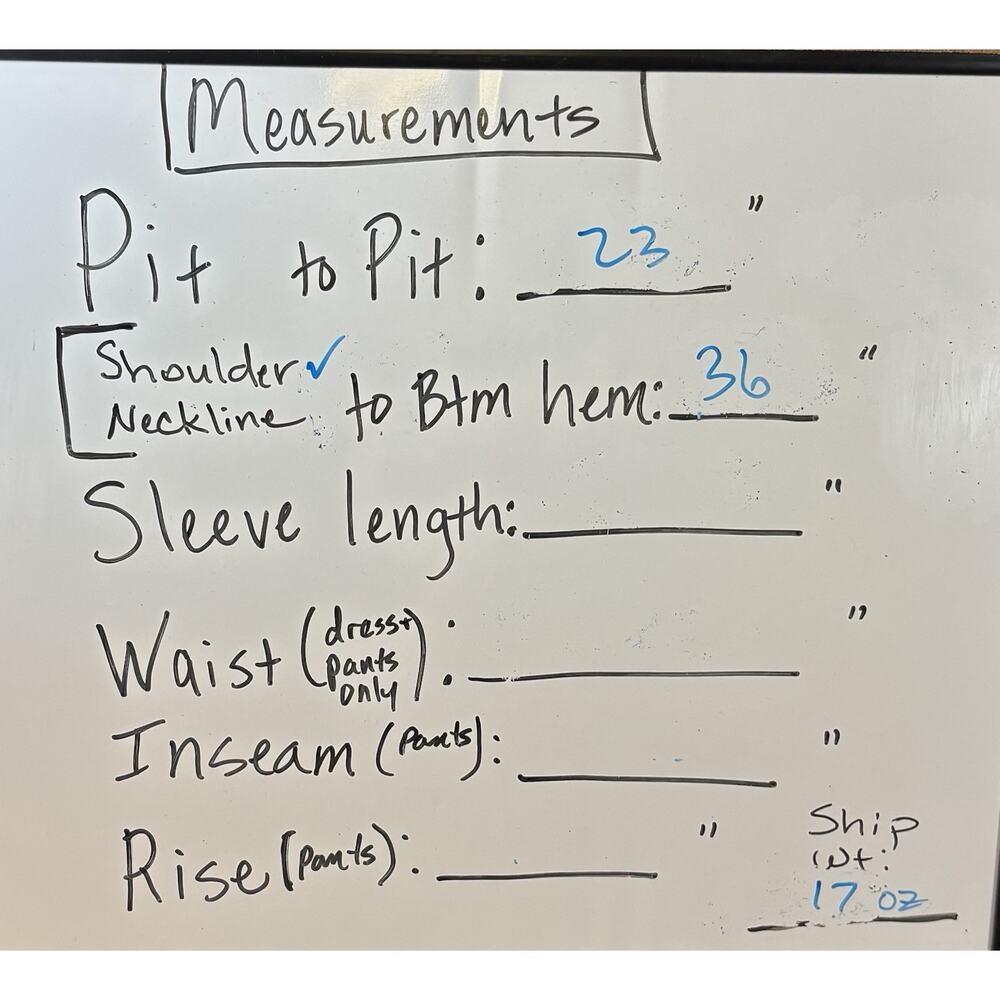 Measurements
Pit to Pit: 23 "
Shoulder ✓
Neckline to Btm hem: 36 "
Sleeve length: "
Waist (dress+
pants
only) : "
Inseam (pants): "
Rise (pants): "
Ship
Wt:
17 oz